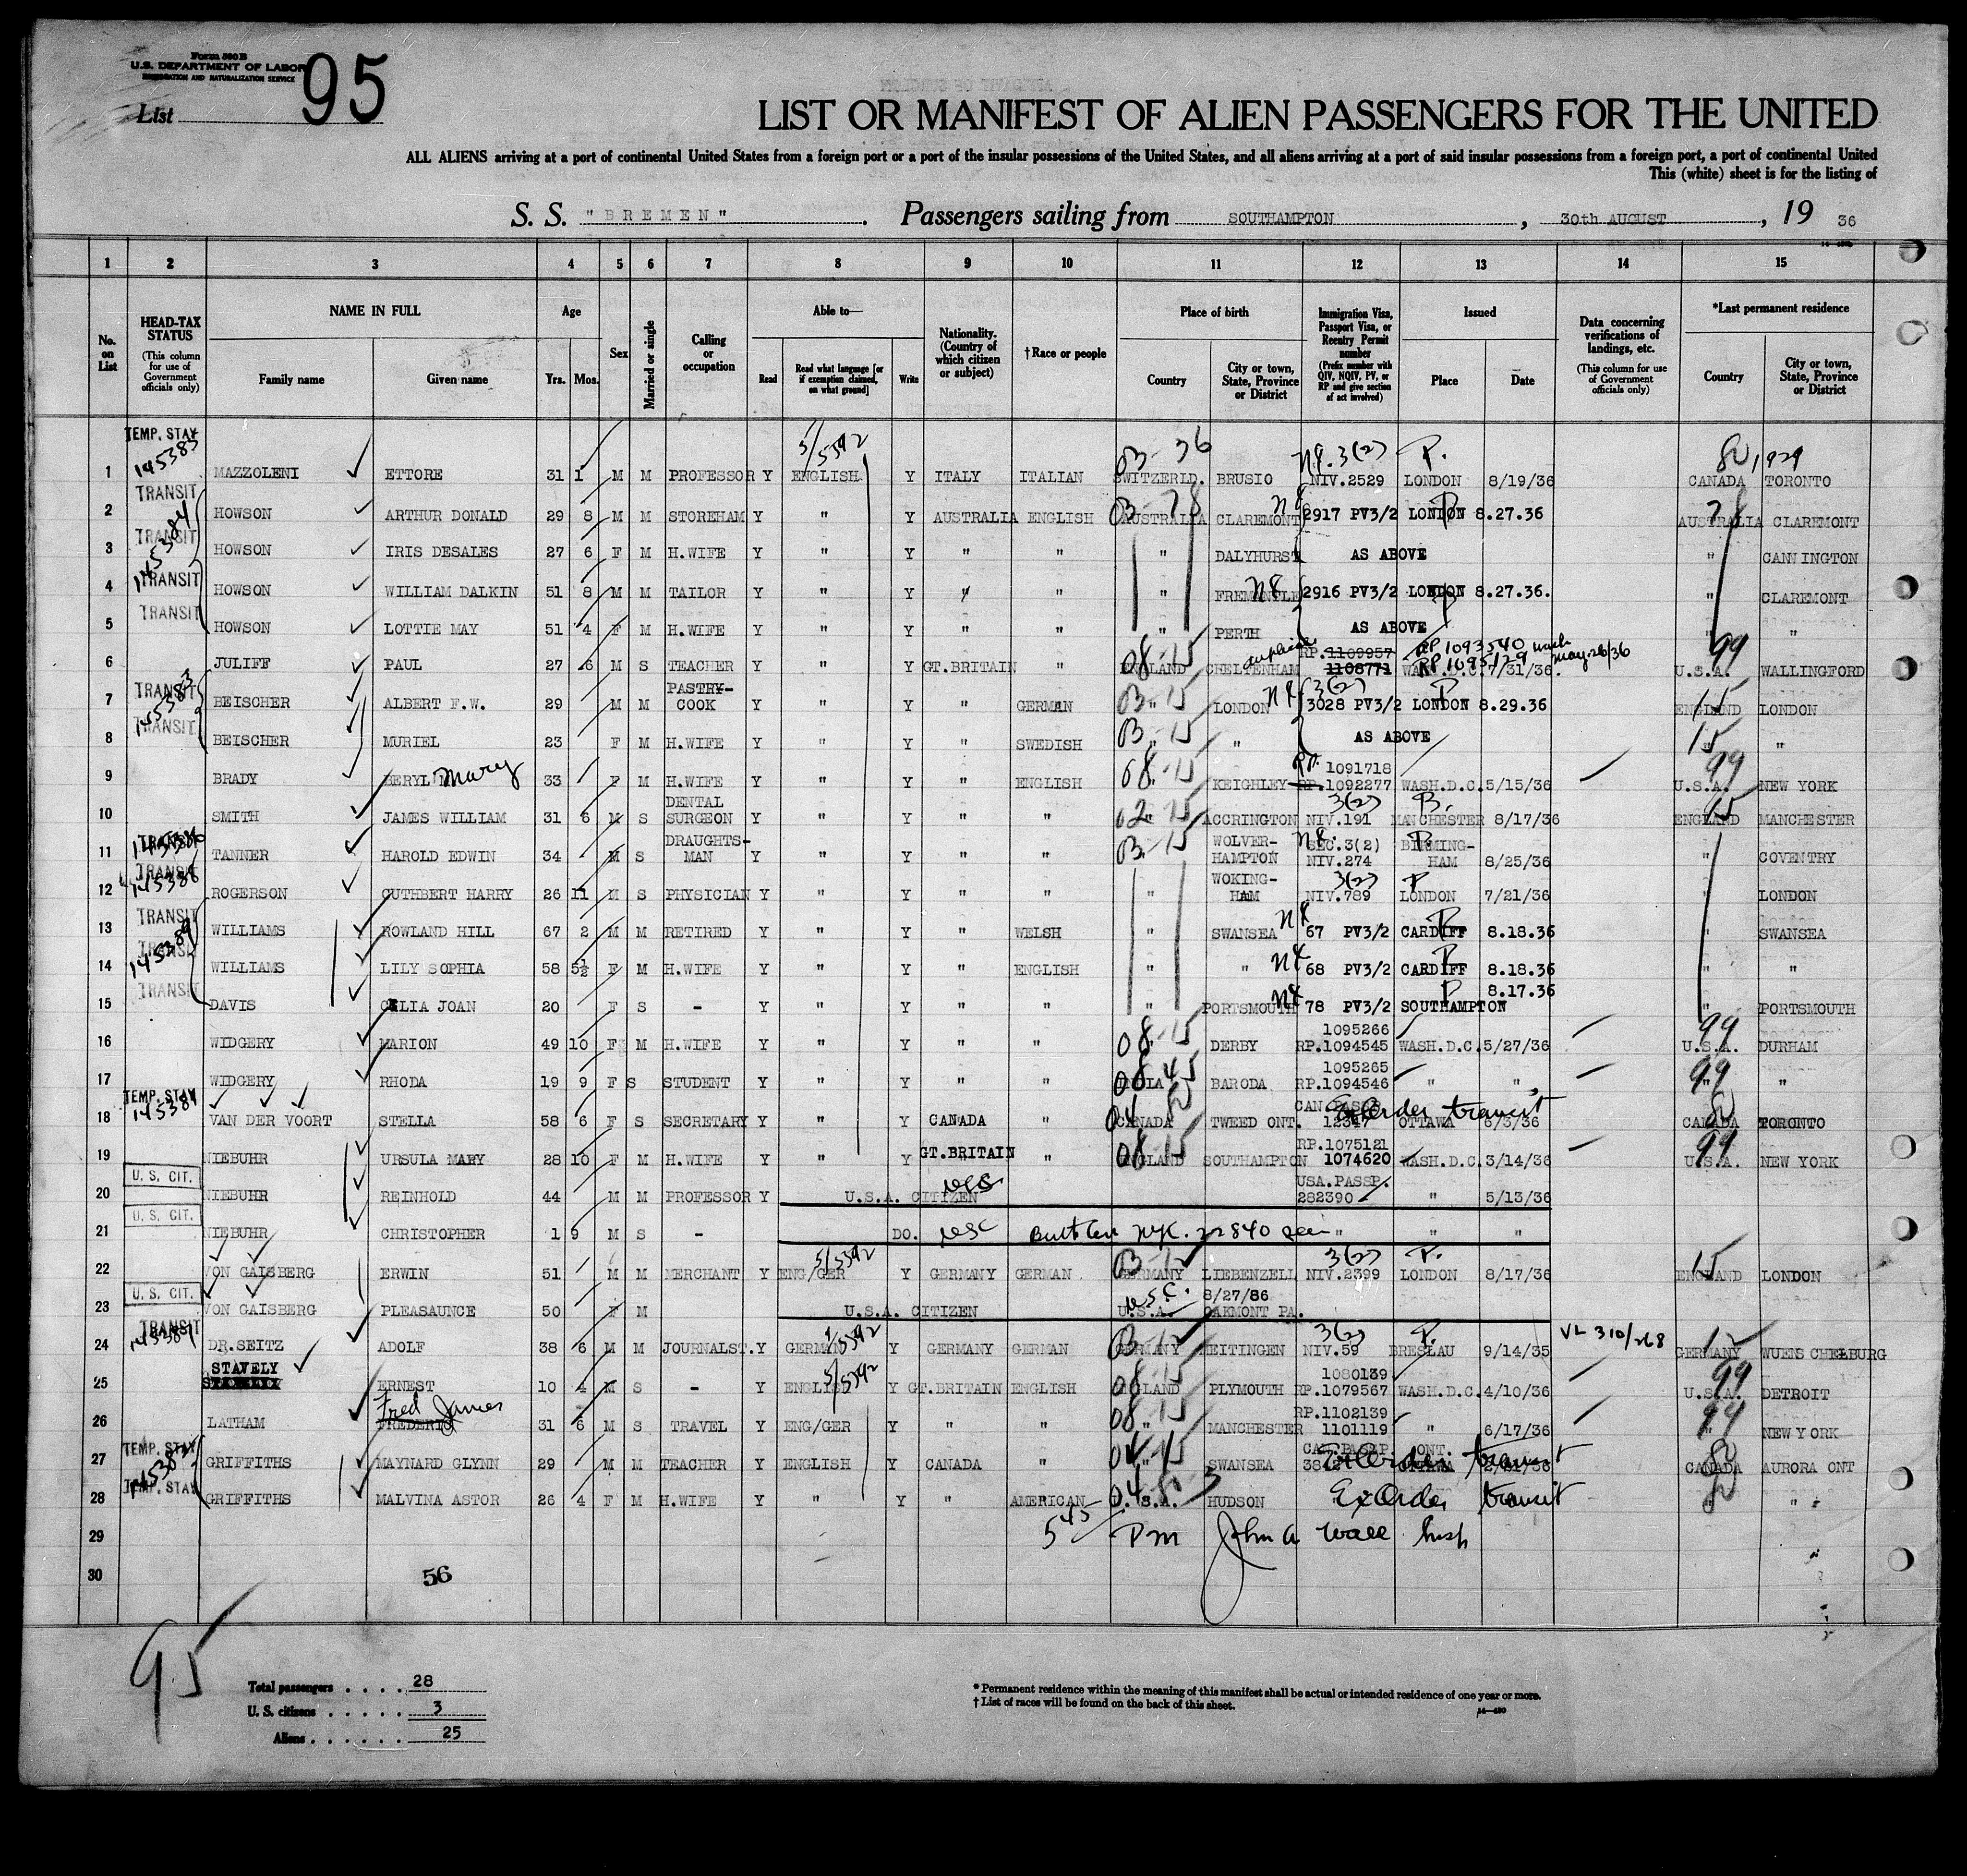 Form 500 B
U.S. DEPARTMENT OF LABOR
IMMIGRATION AND NATURALIZATION SERVICE
List 95
LIST OR MANIFEST OF ALIEN PASSENGERS FOR THE UNITED
ALL ALIENS arriving at a port of continental United States from a foreign port or a port of the insular possessions of the United States, and all aliens arriving at a port of said insular possessions from a foreign port, a port of continental United
This (white) sheet is for the listing of
S. S. "BREMEN" . Passengers sailing from SOUTHAMPTON , 30th AUGUST , 19 36
1 2 3 4 5 6 7 8 9 10 11 12 13 14 15
No. on List
HEAD-TAX STATUS (This column for use of Government officials only)
NAME IN FULL Family name Given name
Age Yrs. Mos.
Sex
Married or single
Calling or occupation
Able to— Read Read what language [or if exemption claimed, on what ground] Write
Nationality. (Country of which citizen or subject)
†Race or people
Place of birth Country City or town, State, Province or District
Immigration Visa, Passport Visa, or Reentry Permit number (Prefix number with QIV, NQIV, PV, or RP and give section of act involved)
Issued Place Date
Data concerning verifications of landings, etc. (This column for use of Government officials only)
*Last permanent residence Country City or town, State, Province or District
TEMP. STAY 145383 5/5392 03-36 3(2) P.
1 MAZZOLENI ETTORE 31 1 M M PROFESSOR Y ENGLISH Y ITALY ITALIAN SWITZERLD. BRUSIO NIV.2529 LONDON 8/19/36 CANADA TORONTO
TRANSIT
2 HOWSON ARTHUR DONALD 29 8 M M STOREHAM Y " Y AUSTRALIA ENGLISH AUSTRALIA CLAREMONT 2917 PV3/2 LONDON 8.27.36 AUSTRALIA CLAREMONT
TRANSIT 145384
3 HOWSON IRIS DESALES 27 6 F M H.WIFE Y " Y " " " DALYHURST AS ABOVE " CANNINGTON
TRANSIT
4 HOWSON WILLIAM DALKIN 51 8 M M TAILOR Y " Y " " " FREMANTLE 2916 PV3/2 LONDON 8.27.36. " CLAREMONT
TRANSIT
5 HOWSON LOTTIE MAY 51 4 F M H.WIFE Y " Y " " " PERTH AS ABOVE " "
duplicate RP.1109957 RP 1093540 wash
6 JULIFF PAUL 27 6 M S TEACHER Y " Y GT.BRITAIN " ENGLAND CHELTENHAM 1108771 RP 1095129 May 26/36 WASH.D.C. 7/31/36. U.S.A. WALLINGFORD
TRANSIT 145383 3(2) P
7 BEISCHER ALBERT F.W. 29 M M PASTRY-COOK Y " Y " GERMAN " LONDON 3028 PV3/2 LONDON 8.29.36 ENGLAND LONDON
TRANSIT
8 BEISCHER MURIEL 23 F M H.WIFE Y " Y " SWEDISH " " AS ABOVE " "
9 BRADY BERYL Mary 33 F M H.WIFE Y " Y " ENGLISH " KEIGHLEY RP. 1091718 RP.1092277 WASH.D.C. 5/15/36 U.S.A. NEW YORK
10 SMITH JAMES WILLIAM 31 6 M S DENTAL SURGEON Y " Y " " " ACCRINGTON 3(2) NIV.191 MANCHESTER 8/17/36 ENGLAND MANCHESTER
TRANSIT
11 TANNER HAROLD EDWIN 34 M S DRAUGHTS-MAN Y " Y " " " WOLVER-HAMPTON SEC.3(2) NIV.274 BIRMING-HAM 8/25/36 " COVENTRY
TRANSIT
12 ROGERSON CUTHBERT HARRY 26 11 M S PHYSICIAN Y " Y " " " WOKING-HAM 3(2) NIV.789 LONDON 7/21/36 " LONDON
TRANSIT
13 WILLIAMS ROWLAND HILL 67 2 M M RETIRED Y " Y " WELSH " SWANSEA 67 PV3/2 CARDIFF 8.18.36 " SWANSEA
TRANSIT 145389
14 WILLIAMS LILY SOPHIA 58 5½ F M H.WIFE Y " Y " ENGLISH " " 68 PV3/2 CARDIFF 8.18.36 " "
TRANSIT
15 DAVIS CELIA JOAN 20 F S - Y " Y " " " PORTSMOUTH 78 PV3/2 SOUTHAMPTON 8.17.36 " PORTSMOUTH
16 WIDGERY MARION 49 10 F M H.WIFE Y " Y " " 08-15 DERBY 1095266 RP.1094545 WASH.D.C. 5/27/36 99 U.S.A. DURHAM
17 WIDGERY RHODA 19 9 F S STUDENT Y " Y " " INDIA BARODA 1095265 RP.1094546 " " 99 "
TEMP. STAY
18 VAN DER VOORT STELLA 58 6 F S SECRETARY Y " Y CANADA " CANADA TWEED ONT. CAN.PASSP. 12347 Ex Order transit OTTAWA 6/3/36 CANADA TORONTO
19 NIEBUHR URSULA MARY 28 10 F M H.WIFE Y " Y GT.BRITAIN " ENGLAND SOUTHAMPTON RP.1075121 1074620 WASH.D.C. 3/14/36 99 U.S.A. NEW YORK
U. S. CIT.
20 NIEBUHR REINHOLD 44 M M PROFESSOR Y U.S.A. CITIZEN USA.PASSP. 282390 " 5/13/36
U. S. CIT.
21 NIEBUHR CHRISTOPHER 1 9 M S - DO. USC 22840 " " "
22 VON GAISBERG ERWIN 51 M M MERCHANT Y ENG/GER 5/5392 Y GERMANY GERMAN GERMANY LIEBENZELL 3(2) NIV.2399 LONDON 8/17/36 15 ENGLAND LONDON
U. S. CIT.
23 VON GAISBERG PLEASAUNCE 50 F M U.S.A. CITIZEN USC. U.S.A. 8/27/86 OAKMONT PA.
TRANSIT
24 DR.SEITZ ADOLF 38 6 M M JOURNALST. Y GERMAN Y GERMANY GERMAN GERMANY MEITINGEN 3(2) NIV.59 BRESLAU 9/14/35 VL 310/268 12 GERMANY WUENSCHELBURG
25 STAVELY ERNEST 10 4 M S - Y ENGLISH Y GT.BRITAIN ENGLISH ENGLAND PLYMOUTH 1080139 RP.1079567 WASH.D.C. 4/10/36 99 U.S.A. DETROIT
26 LATHAM Fred James FREDERIC 31 6 M S TRAVEL Y ENG/GER Y " " " MANCHESTER RP.1102139 1101119 " 6/17/36 99 " NEW YORK
TEMP. STAY
27 GRIFFITHS MAYNARD GLYNN 29 M M TEACHER Y ENGLISH Y CANADA " " SWANSEA CAN.PASSP. ONT. Ex Order transit OTTAWA CANADA AURORA ONT
TEMP. STAY
28 GRIFFITHS MALVINA ASTOR 26 4 F M H.WIFE Y " Y AMERICAN U.S.A. HUDSON Ex Order transit " "
29 5 45 Pm John A Wall Insp
30 56
95
Total passengers . . . . 28
U. S. citizens . . . . . 3
Aliens . . . . . . 25
* Permanent residence within the meaning of this manifest shall be actual or intended residence of one year or more.
† List of races will be found on the back of this sheet.
14—480